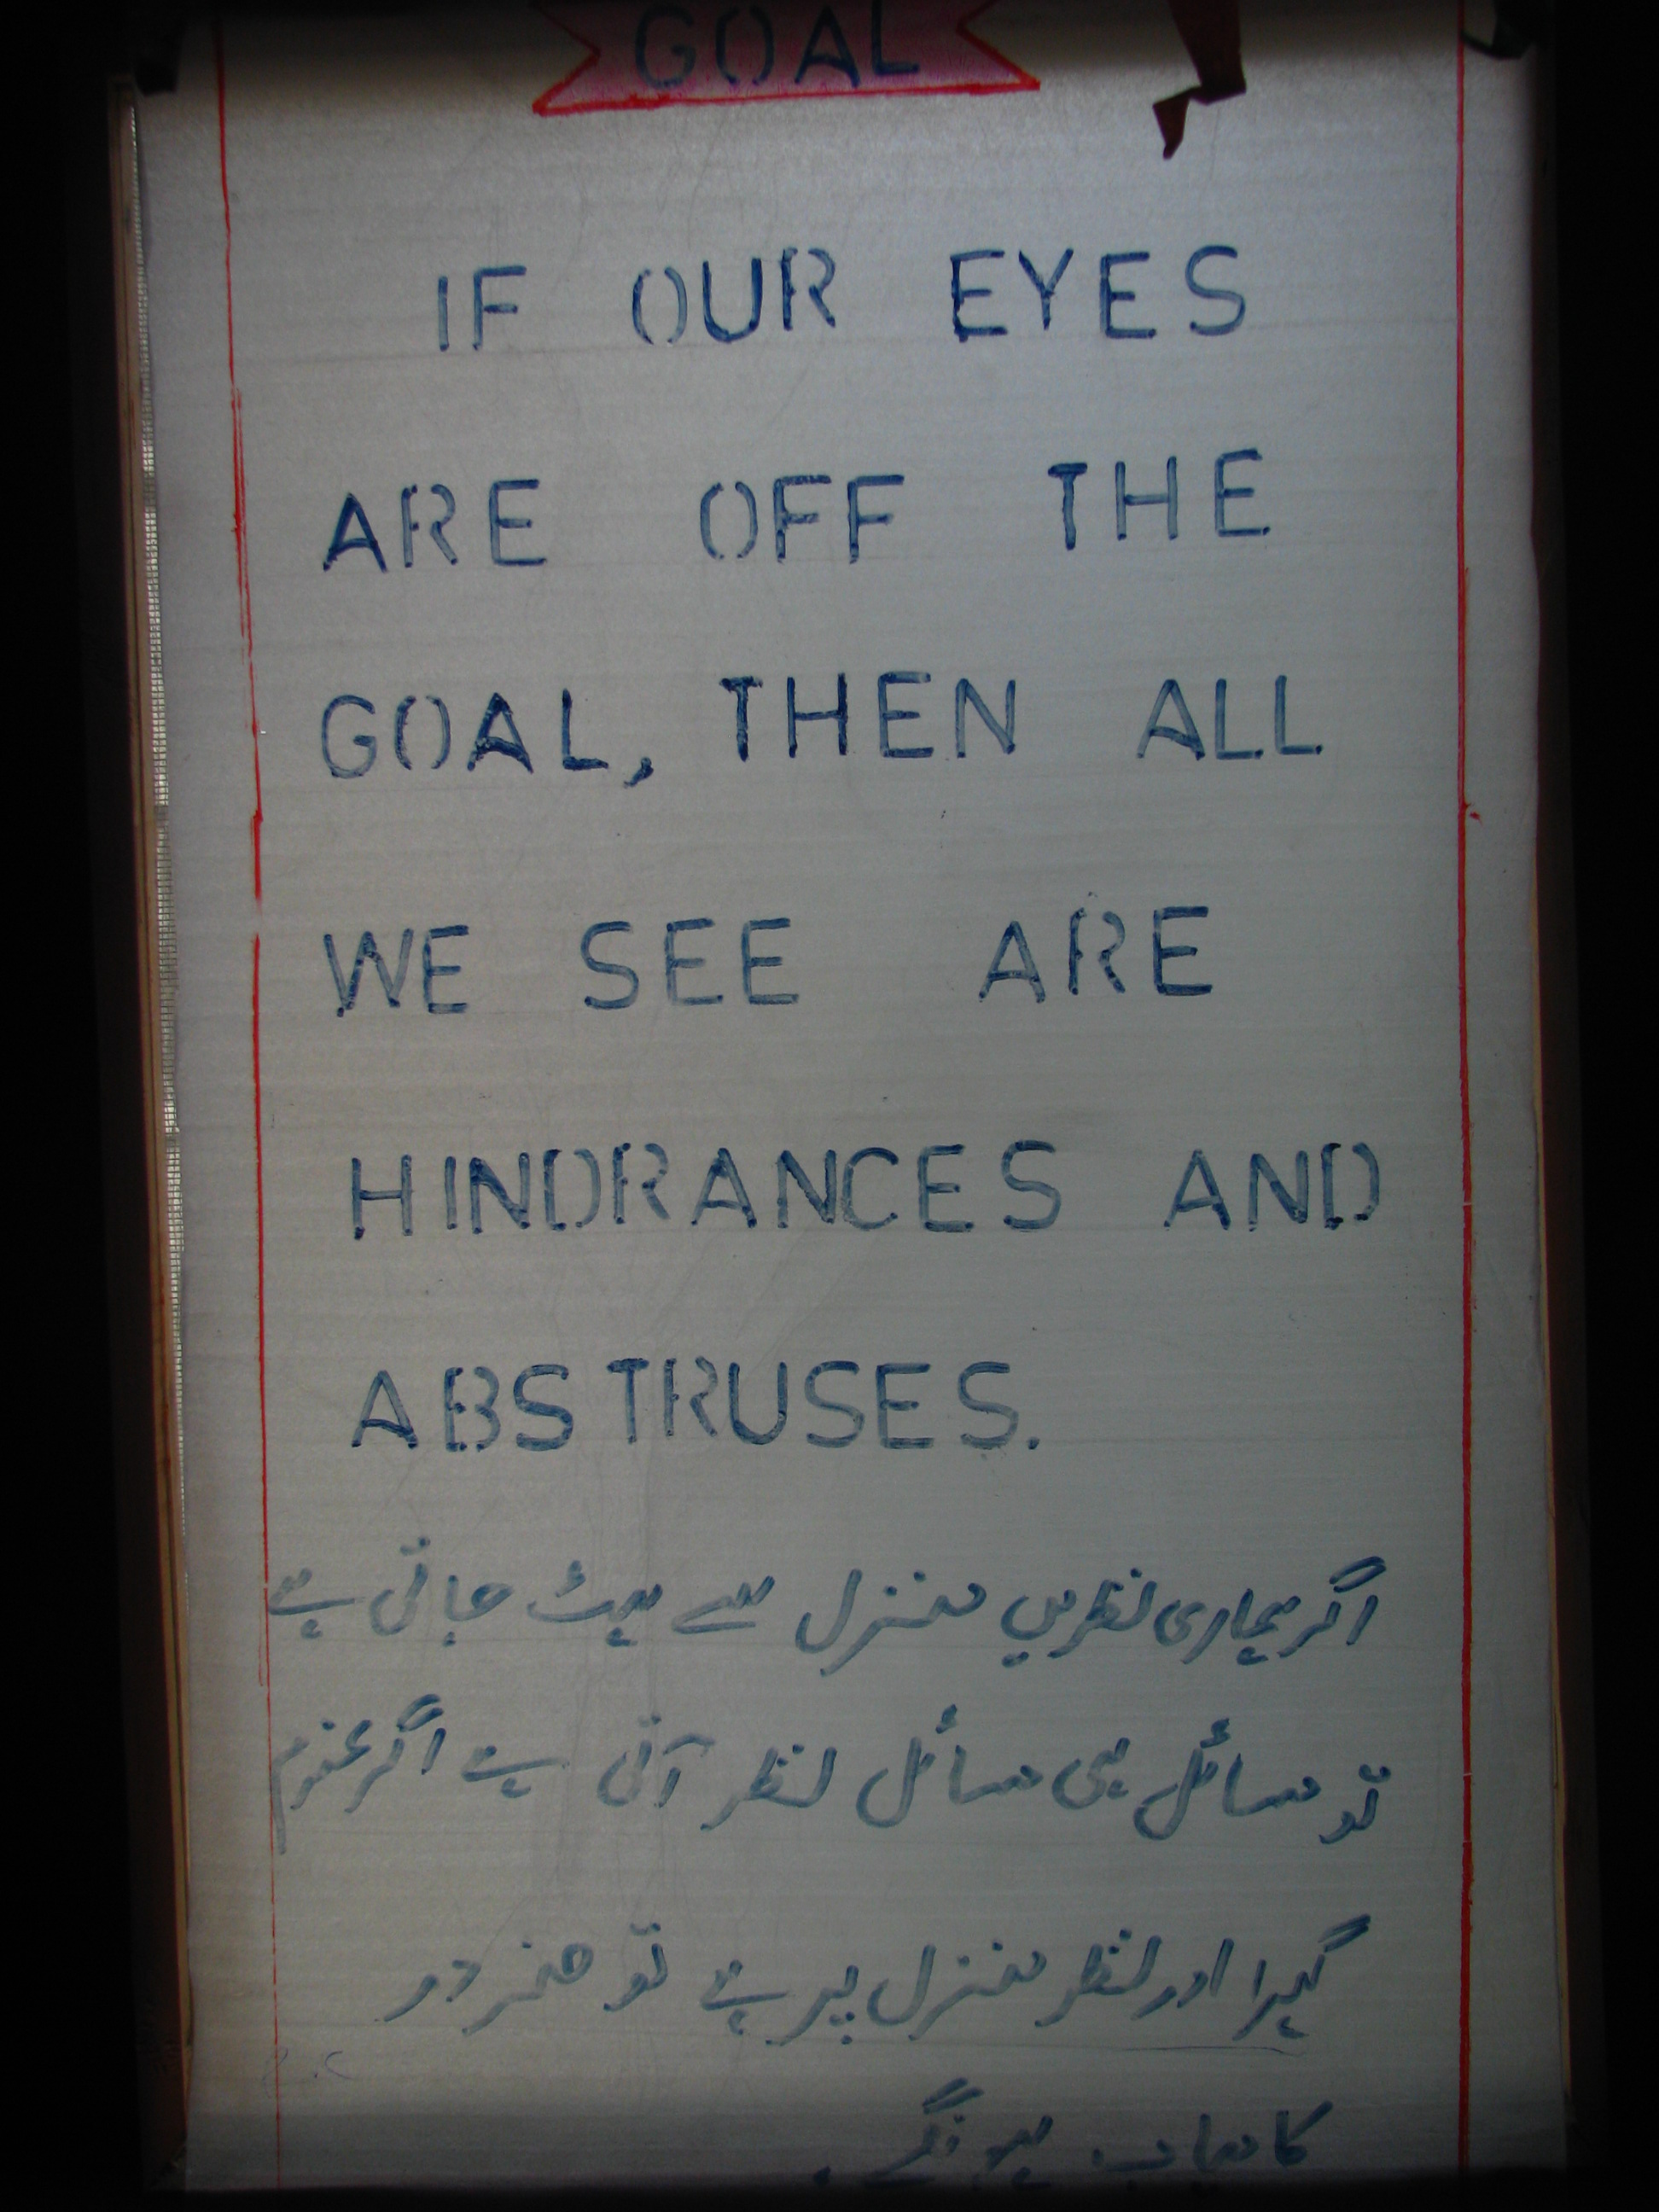 GOAL
IF OUR EYES
ARE OFF THE
GOAL, THEN ALL
WE SEE ARE
HINDRANCES AND
ABSTRUSES.
اگر ہماری نظریں منزل سے ہٹ جاتی ہے
تو مسائل ہی مسائل نظر آتی ہے اگر عزم
گہرا اور نظر منزل پر ہے تو ضرور
کامیاب ہونگے.